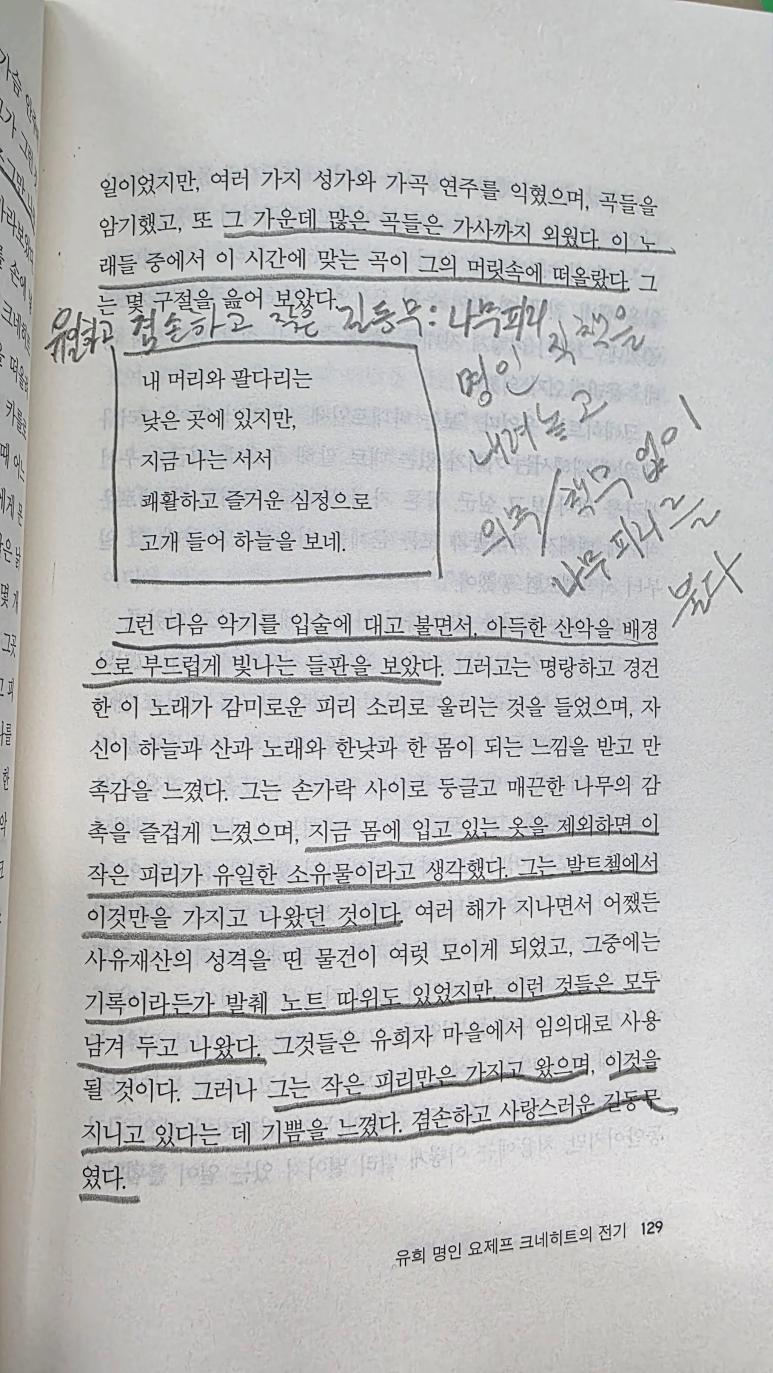 일이었지만, 여러 가지 성가와 가곡 연주를 익혔으며, 곡들을
암기했고, 또 그 가운데 많은 곡들은 가사까지 외웠다. 이 노
래들 중에서 이 시간에 맞는 곡이 그의 머릿속에 떠올랐다. 그
는 몇 구절을 읊어 보았다.
유일하고 겸손하고 작은 길동무: 나무피리
직책을
명인
내려놓고
의무/책무 없이
나무피리를
불다
내 머리와 팔다리는
낮은 곳에 있지만,
지금 나는 서서
쾌활하고 즐거운 심정으로
고개 들어 하늘을 보네.
그런 다음 악기를 입술에 대고 불면서, 아득한 산악을 배경
으로 부드럽게 빛나는 들판을 보았다. 그러고는 명랑하고 경건
한 이 노래가 감미로운 피리 소리로 울리는 것을 들었으며, 자
신이 하늘과 산과 노래와 한낮과 한 몸이 되는 느낌을 받고 만
족감을 느꼈다. 그는 손가락 사이로 둥글고 매끈한 나무의 감
촉을 즐겁게 느꼈으며, 지금 몸에 입고 있는 옷을 제외하면 이
작은 피리가 유일한 소유물이라고 생각했다. 그는 발트첼에서
이것만을 가지고 나왔던 것이다. 여러 해가 지나면서 어쨌든
사유재산의 성격을 띤 물건이 여럿 모이게 되었고, 그중에는
기록이라든가 발췌 노트 따위도 있었지만, 이런 것들은 모두
남겨 두고 나왔다. 그것들은 유희자 마을에서 임의대로 사용
될 것이다. 그러나 그는 작은 피리만은 가지고 왔으며, 이것을
지니고 있다는 데 기쁨을 느꼈다. 겸손하고 사랑스러운 길동무
였다.
유희 명인 요제프 크네히트의 전기 129